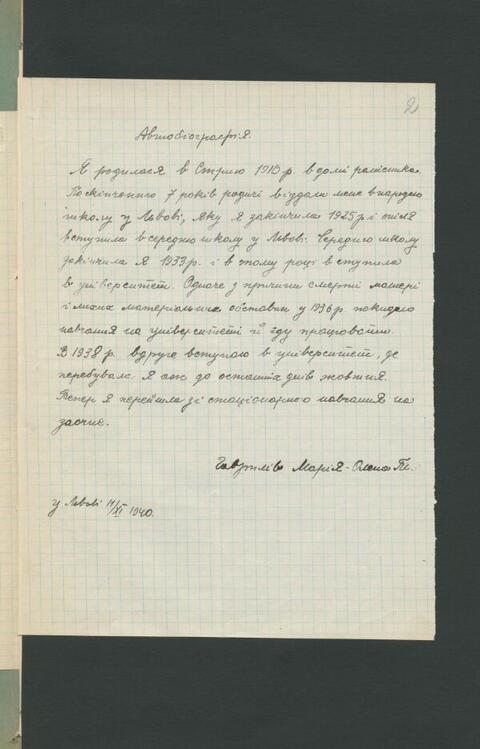 2
Автобіографія.
Я родилася в Стрию 1915 р. в домі ремісника.
По скінченню 7 років родичі віддали мене в народню
школу у Львові, яку я закінчила 1925 р. і після
вступила в середню школу у Львові. Середню школу
закінчила я 1933 р. і в тому році вступила
в університет. Одначе з причини смерті матері
і лихих матеріальних обставин у 1936 р. покидаю
навчання на університеті й іду працювати.
В 1938 р. вдруге вступаю в університет, де
перебувала я аж до останніх днів жовтня.
Тепер я перейшла зі стаціонарного навчання на
заочне.
Марія-Олена
у Львові 11/XI 1940.